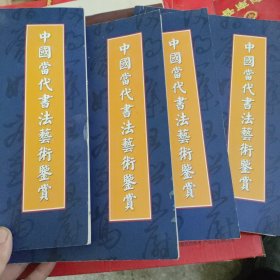 中國當代書法藝術鑒賞
中國當代書法藝術鑒賞
中國當代書法藝術鑒賞
中國當代書法藝術鑒賞